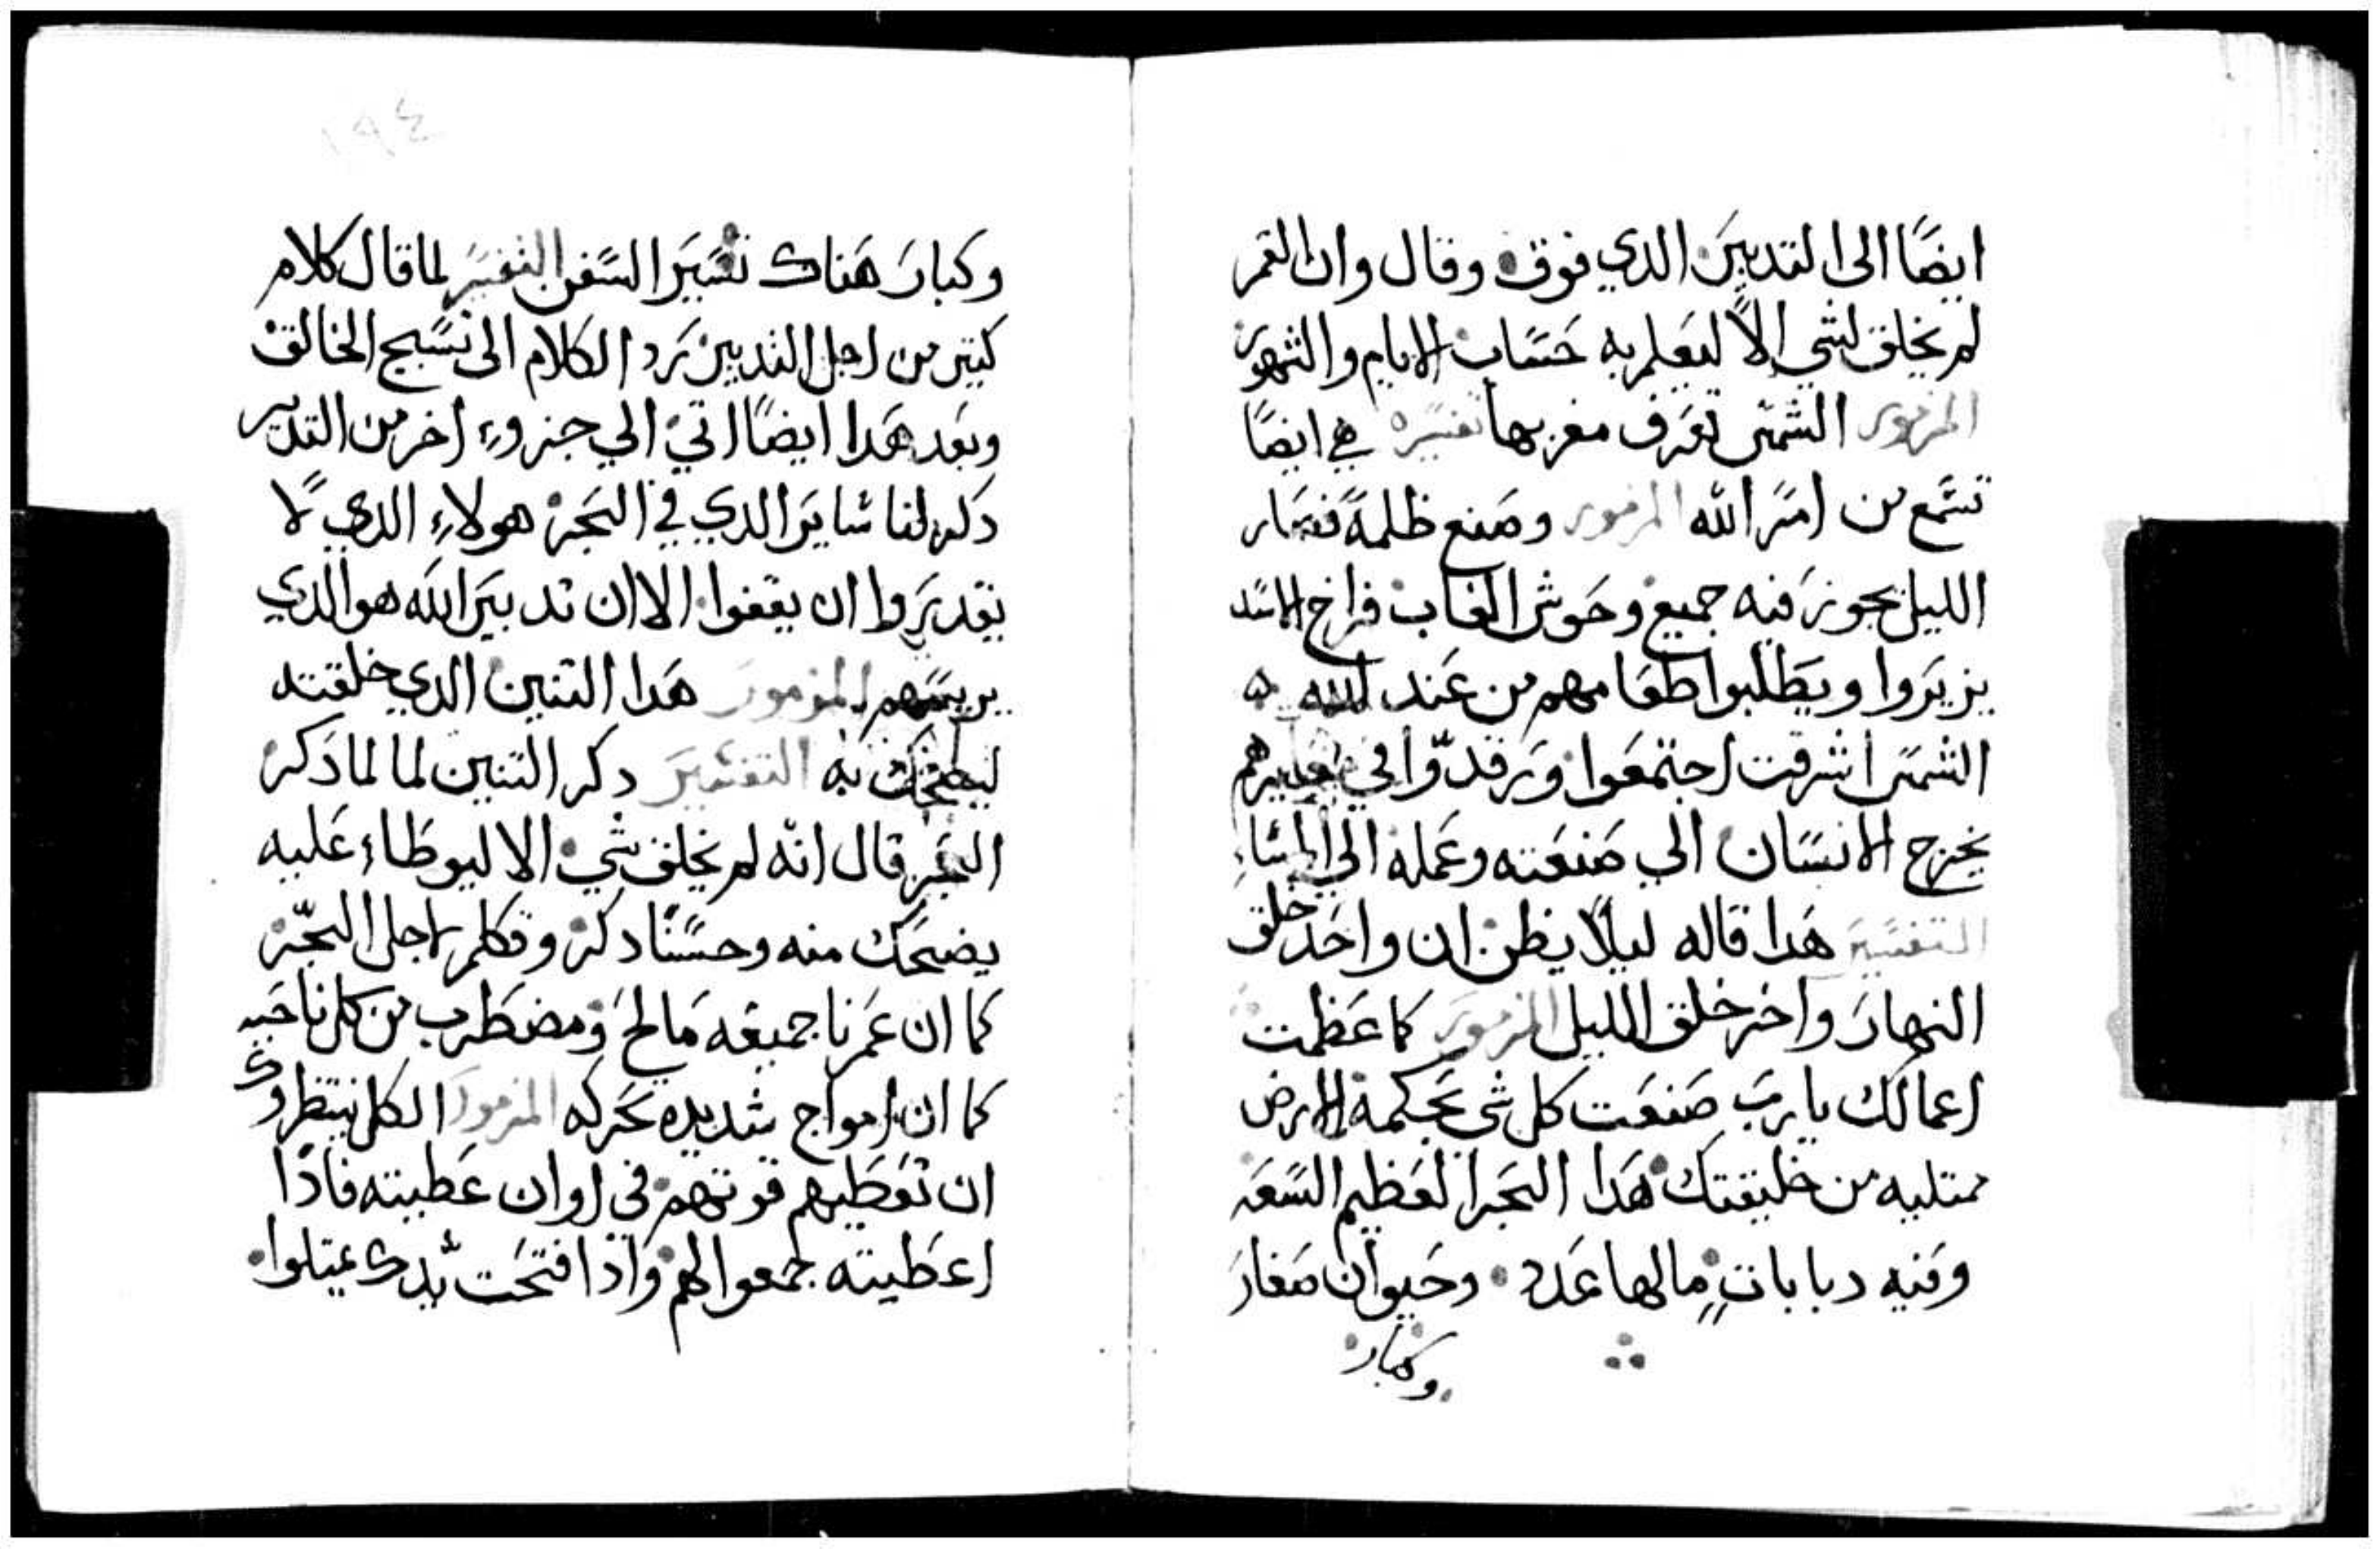 ايضًا الى التدبير الدي فوق وقال وان القمر
لم يخلق لشي الا ليعلم به حساب الايام والشهور
المزمور الشمس تعرف مغربها تفسيره هي ايضًا
تسمع من امر الله المزمور وصنع ظلمة فصار
الليل يجوز فيه جميع وحوش الغاب فراخ الاسد
يزيروا ويطلبوا طعامهم من عند الله
الشمس اشرقت اجتمعوا ورقدوا في
يخرج الانسان الي صنعته وعمله الي المساء
التفسير هدا قاله ليلا يظن ان واحد خلق
النهار واخر خلق الليل المزمور كما عظمت
اعمالك يا رب صنعت كل شي بحكمة الارض
ممتليه من خليقتك هدا البحر العظيم السعه
وفيه دبابات مالها عدد وحيوان صغار
وكبار
١٩٤
وكبار هناك تسير السفن التفسير لما قال كلام
كتير من اجل التدبير رد الكلام الى تسبيح الخالق
وبعد هدا ايضًا اتي الي جزوء اخر من التدبير
دكر لنا ساير الدي في البحر هولاء الدي لا
يقديروا ان يقفوا الا ان تدبير الله هو الدي
يريسهم المزمور هدا التنين الدي خلقته
ليضحك به التفسير دكر التنين لما لما دكر
البحر قال انه لم يخلق شي الا ليوطاء عليه
يضحك منه وحسنًا دكر وتكلم لاجل البحر
كما ان عمرنا جميعه مالح ومضطرب من كل ناحيه
كما ان امواج شديده تحركه المزمور الكل ينتظروك
ان تعطيهم قوتهم في اوان عطيته فاذا
اعطيته جمعوا لهم واذا افتحت يدك يمتلوا